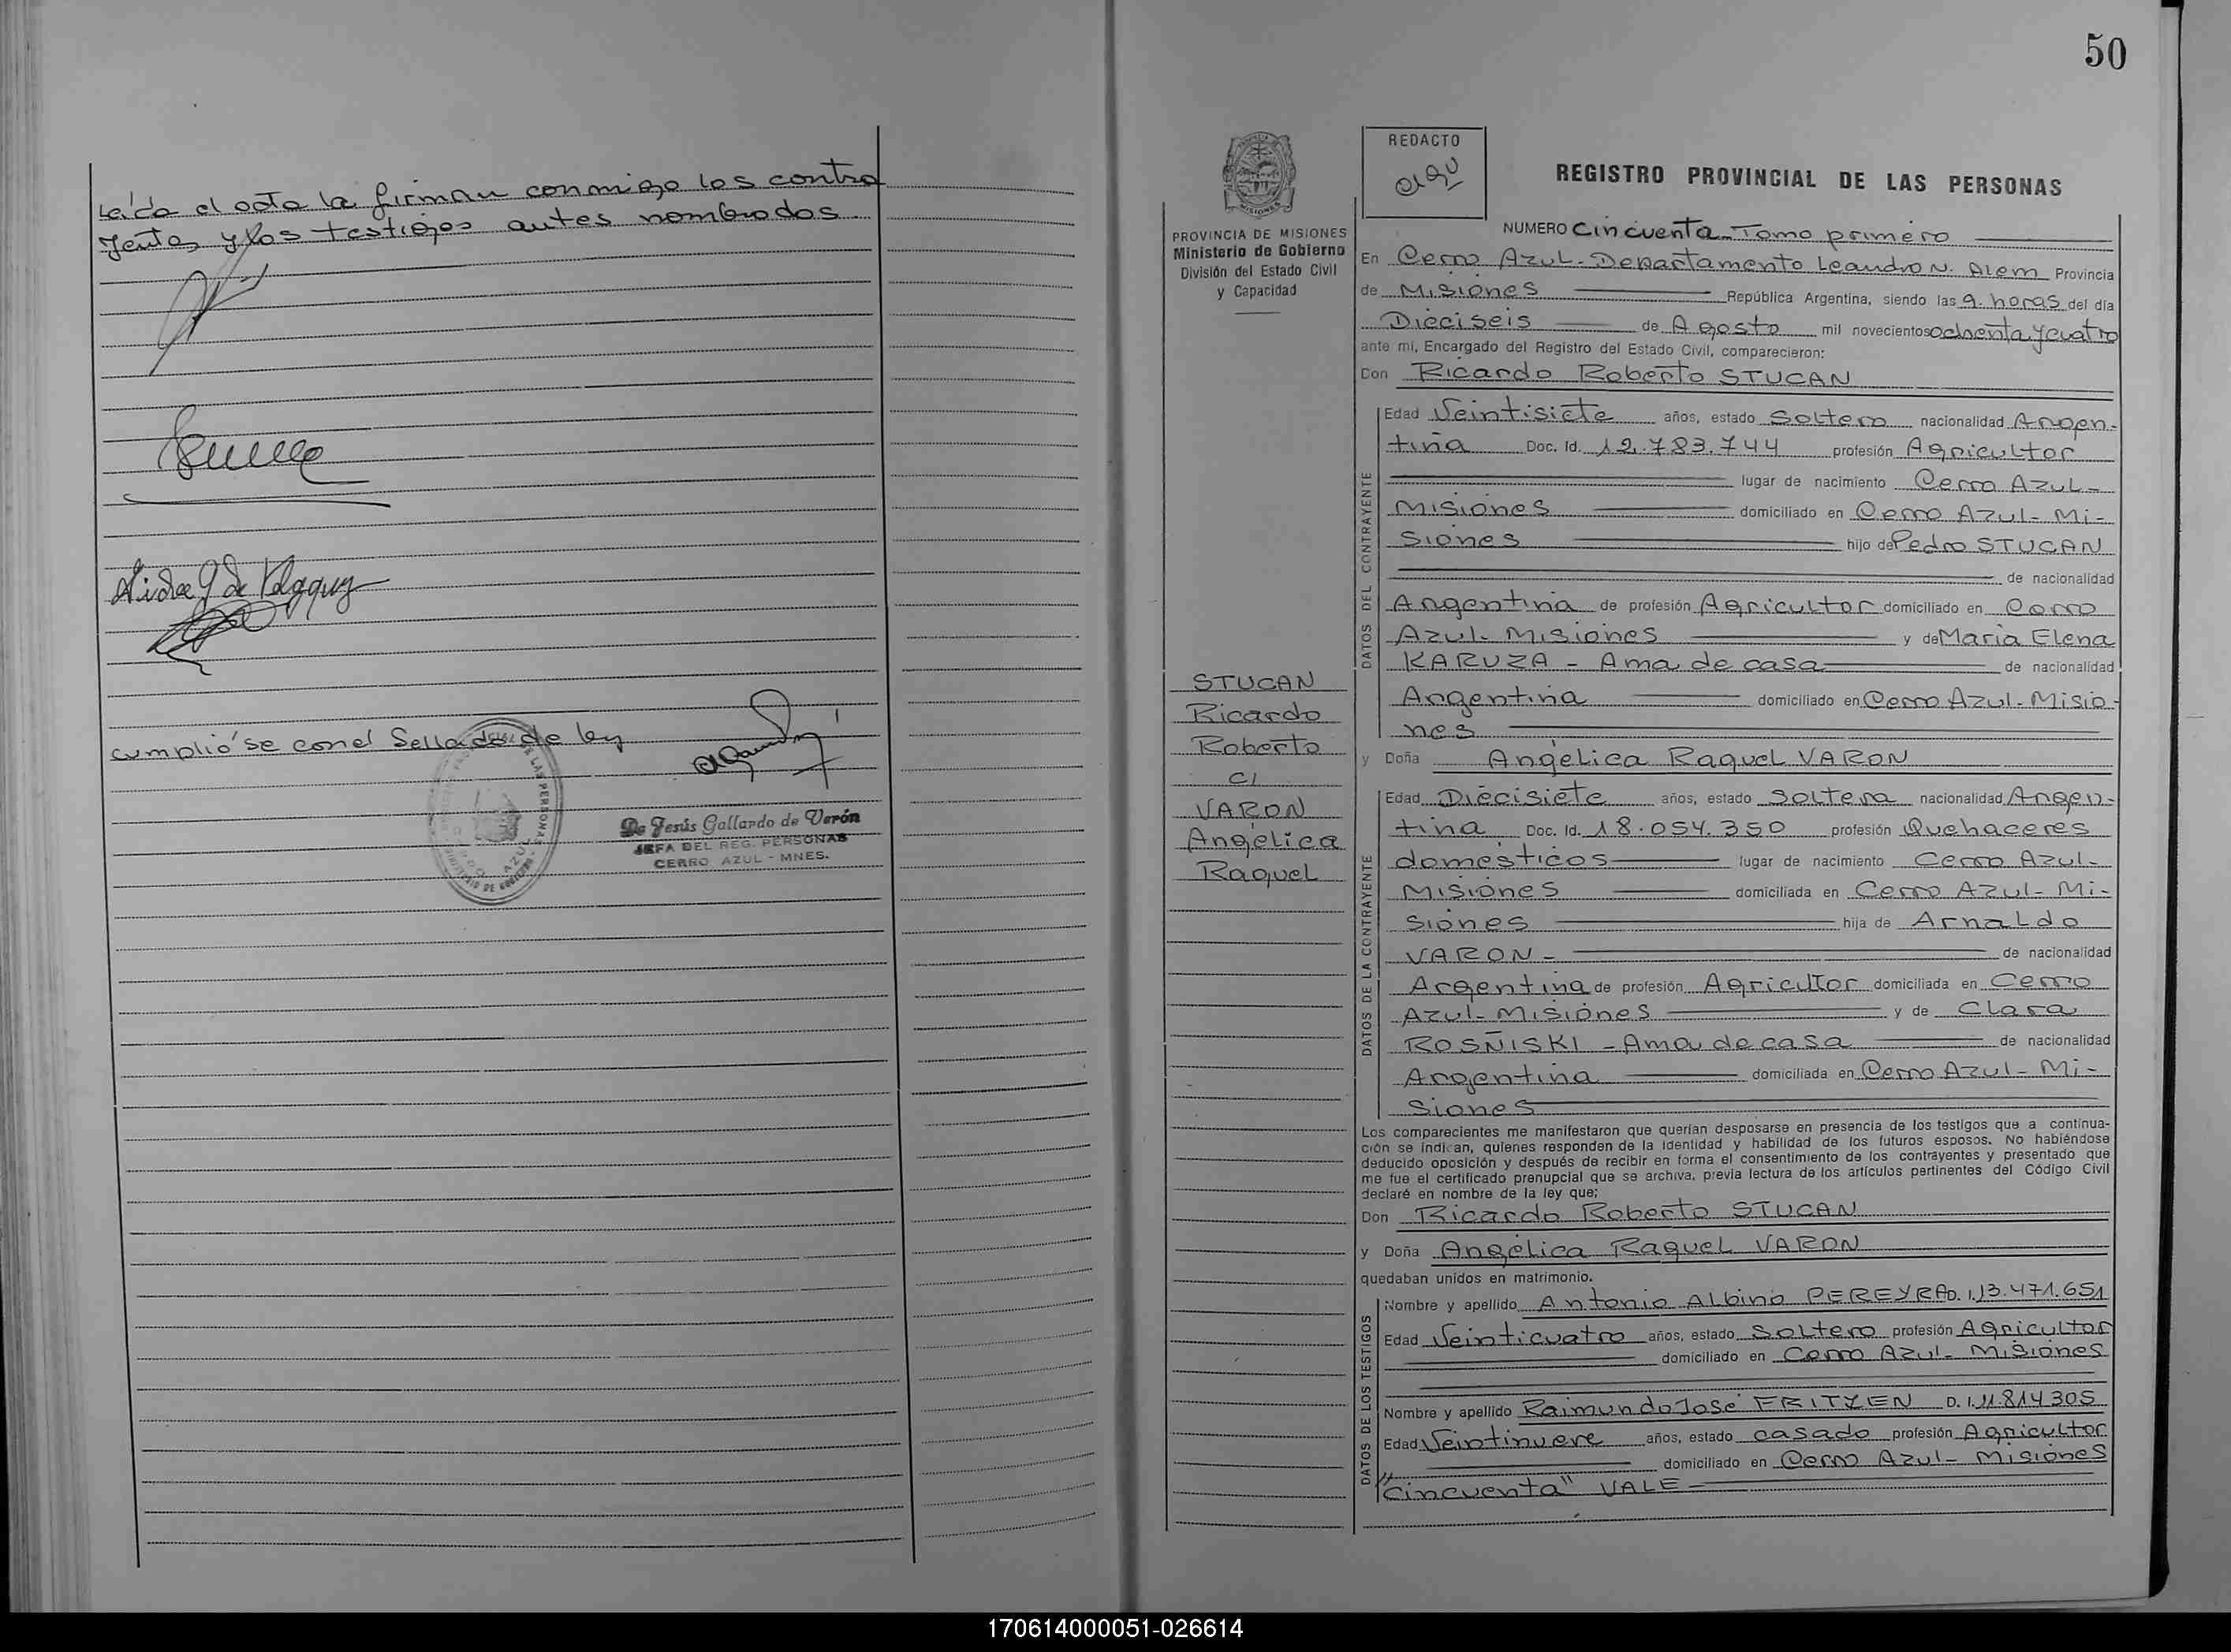 Leída el acta la firman conmigo los contra
yentes y los testigos antes nombrados.
cumplió'se con el Sellado de ley
De Jesús Gallardo de Verón
JEFA DEL REG. PERSONAS
CERRO AZUL - MNES.
50
REDACTO
REGISTRO PROVINCIAL DE LAS PERSONAS
PROVINCIA DE MISIONES
Ministerio de Gobierno
División del Estado Civil
y Capacidad
STUCAN
Ricardo
Roberto
c/
VARON
Angélica
Raquel
NUMERO Cincuenta - Tomo primero
En Cerro Azul - Departamento Leandro N. Alem Provincia
de Misiones República Argentina, siendo las 9. horas del día
Dieciseis de Agosto mil novecientos ochenta y cuatro
ante mi, Encargado del Registro del Estado Civil, comparecieron:
Don Ricardo Roberto STUCAN
DATOS DEL CONTRAYENTE
Edad Veintisiete años, estado Soltero nacionalidad Argen-
tina Doc. Id. 12.783.744 profesión Agricultor
lugar de nacimiento Cerro Azul -
Misiones domiciliado en Cerro Azul - Mi-
siones hijo de Pedro STUCAN
de nacionalidad
Argentina de profesión Agricultor domiciliado en Cerro
Azul - Misiones y de María Elena
KARUZA - Ama de casa de nacionalidad
Argentina domiciliado en Cerro Azul - Misio-
nes
y Doña Angélica Raquel VARON
DATOS DE LA CONTRAYENTE
Edad Diecisiete años, estado Soltera nacionalidad Argen-
tina Doc. Id. 18.054.350 profesión Quehaceres
domésticos lugar de nacimiento Cerro Azul -
Misiones domiciliada en Cerro Azul - Mi-
siones hija de Arnaldo
VARON - de nacionalidad
Argentina de profesión Agricultor domiciliada en Cerro
Azul - Misiones y de Clara
ROSÑISKI - Ama de casa de nacionalidad
Argentina domiciliada en Cerro Azul - Mi-
siones
Los comparecientes me manifestaron que querían desposarse en presencia de los testigos que a continua-
ción se indican, quienes responden de la identidad y habilidad de los futuros esposos. No habiéndose
deducido oposición y después de recibir en forma el consentimiento de los contrayentes y presentado que
me fue el certificado prenupcial que se archiva, previa lectura de los artículos pertinentes del Código Civil
declaré en nombre de la ley que;
Don Ricardo Roberto STUCAN
y Doña Angélica Raquel VARON
quedaban unidos en matrimonio.
DATOS DE LOS TESTIGOS
Nombre y apellido Antonio Albino PEREYRA D. I. 13.471.651
Edad Veinticuatro años, estado Soltero profesión Agricultor
domiciliado en Cerro Azul - Misiones
Nombre y apellido Raimundo José FRITZEN D. I. 11.814305
Edad Veintinueve años, estado casado profesión Agricultor
domiciliado en Cerro Azul - Misiones
"Cincuenta" VALE -
170614000051-026614